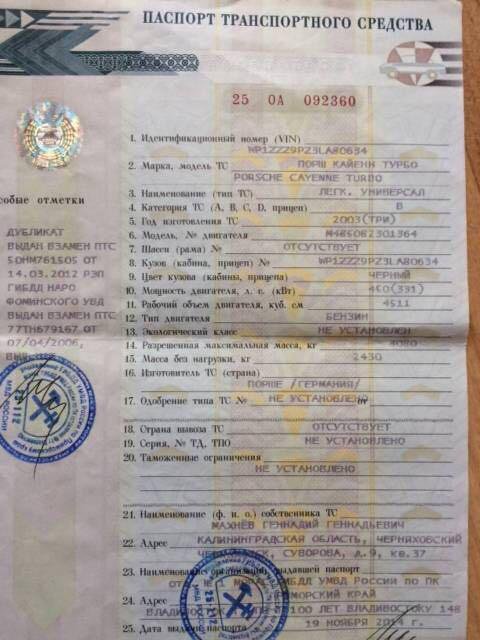 ПАСПОРТ ТРАНСПОРТНОГО СРЕДСТВА
25 ОА 092360
1. Идентификационный номер (VIN)
WP1ZZZ9PZ3LA80634
2. Марка, модель ТС ПОРШ КАЙЕНН ТУРБО
PORSCHE CAYENNE TURBO
3. Наименование (тип ТС) ЛЕГК. УНИВЕРСАЛ
4. Категория ТС (А, В, С, D, прицеп) В
5. Год изготовления ТС 2003(ТРИ)
6. Модель, № двигателя M485082301364
7. Шасси (рама) № ОТСУТСТВУЕТ
8. Кузов (кабина, прицеп) № WP1ZZZ9PZ3LA80634
9. Цвет кузова (кабины, прицепа) ЧЕРНЫЙ
10. Мощность двигателя, л. с. (кВт) 450(331)
11. Рабочий объем двигателя, куб. см 4511
12. Тип двигателя БЕНЗИН
13. Экологический класс НЕ УСТАНОВЛЕН
14. Разрешенная максимальная масса, кг 3080
15. Масса без нагрузки, кг 2430
16. Изготовитель ТС (страна)
ПОРШЕ /ГЕРМАНИЯ/
17. Одобрение типа ТС № НЕ УСТАНОВЛЕНО
18. Страна вывоза ТС ОТСУТСТВУЕТ
19. Серия, № ТД, ТПО НЕ УСТАНОВЛЕН
20. Таможенные ограничения
НЕ УСТАНОВЛЕНО
21. Наименование (ф. и. о.) собственника ТС
МАХНЕВ ГЕННАДИЙ ГЕННАДЬЕВИЧ
22. Адрес КАЛИНИНГРАДСКАЯ ОБЛАСТЬ, ЧЕРНЯХОВСКИЙ
СУВОРОВА, д.9, кв.37
23. Наименование организации, выдавшей паспорт
ГИБДД УМВД РОССИИ ПО ПК
24. Адрес КРАЙ
ВЛАДИВОСТОК 100 ЛЕТ ВЛАДИВОСТОКУ 148
25. Дата выдачи паспорта 19 НОЯБРЯ 2014 г.
собые отметки
ДУБЛИКАТ
ВЫДАН ВЗАМЕН ПТС
50НМ761505 ОТ
14.03.2012 РЭП
ГИБДД НАРО
ФОМИНСКОГО УВД
ВЫДАН ВЗАМЕН ПТС
77ТН679167 ОТ
07/04/2006,